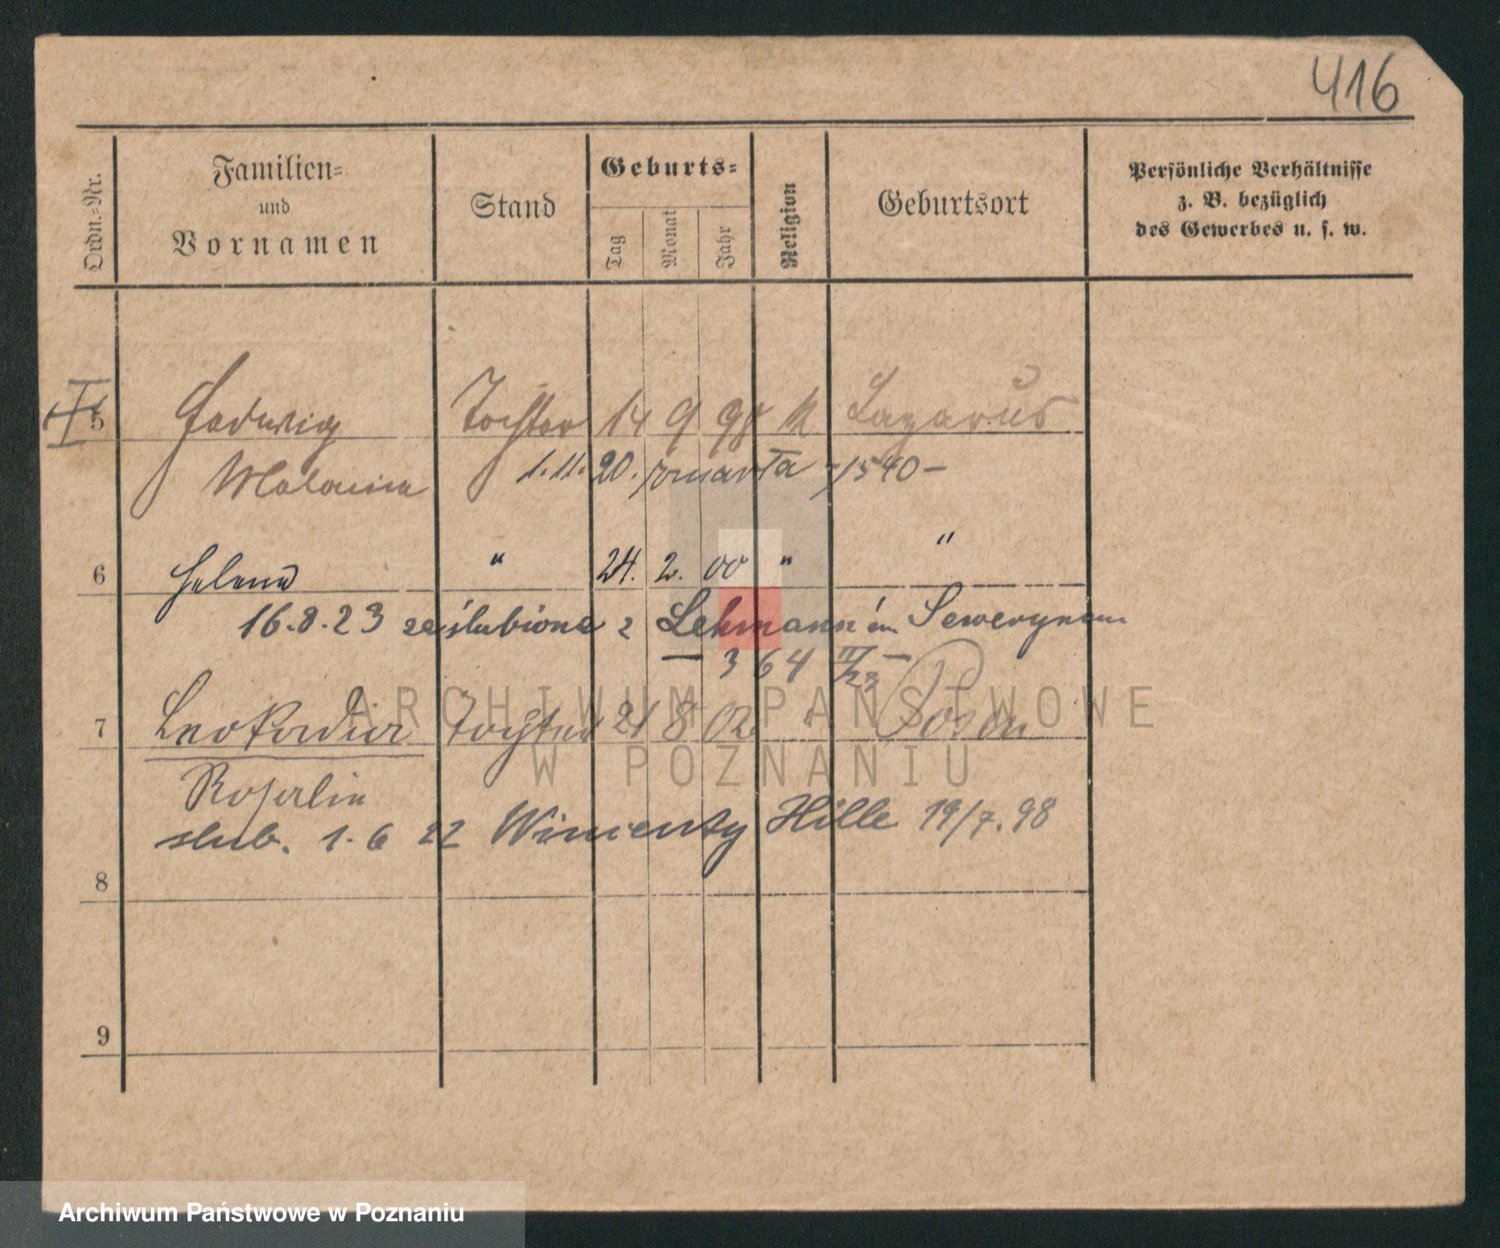 416
Ordn.-Nr.
Familien-
und
Vornamen
Stand
Geburts-
Tag
Monat
Jahr
Religion
Geburtsort
Persönliche Verhältnisse
z. B. bezüglich
des Gewerbes u. s. w.
5 Hedwig Tochter 14 9 98 k Lazarus
1.11.20. zmarła 1540 –
6 Helene " 24. 2. 00 " "
16.8.23 zaślubiona z Lehmann'em Sewerynem
– 364 II/23 –
7 Leokadia Tochter 21 8 02 " Posen
Rosalie
slub. 1.6 22 Wincenty Hille 19/7.98
8
9
ARCHIWUM PAŃSTWOWE
W POZNANIU
Archiwum Państwowe w Poznaniu